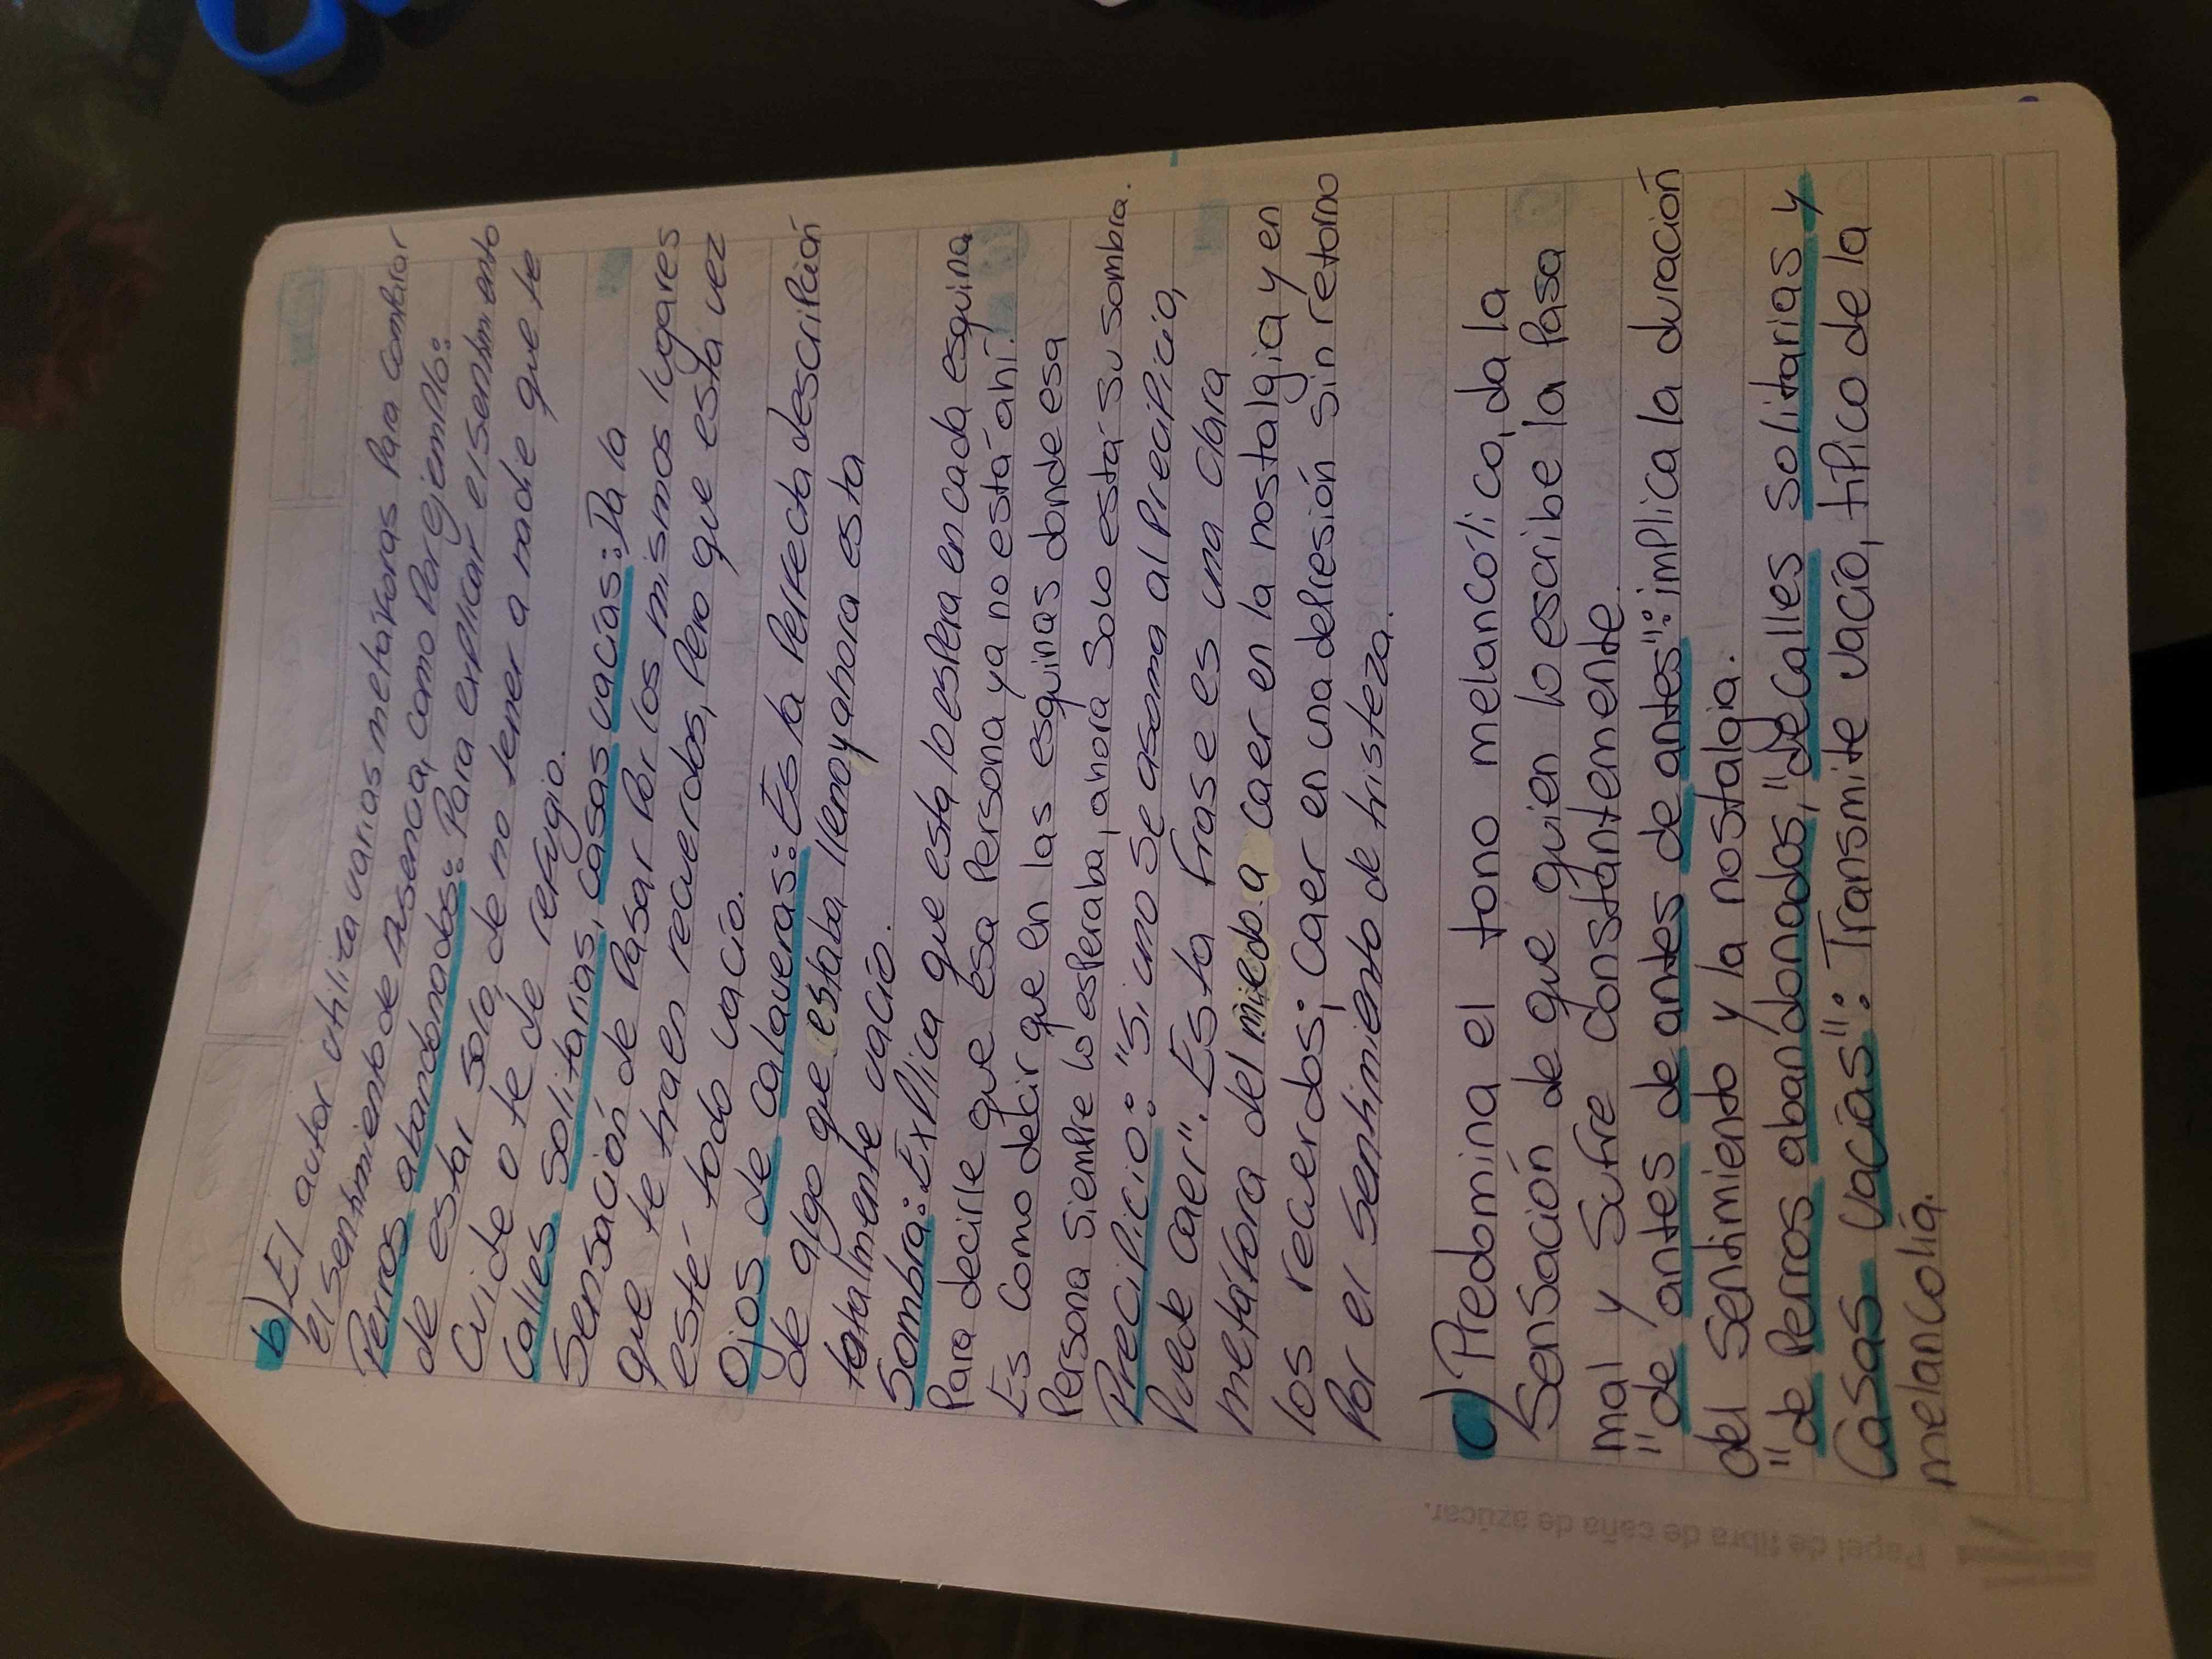 b) El autor utiliza varias metáforas para comparar
el sentimiento de ausencia, como por ejemplo:
Perros abandonados: Para explicar el sentimiento
de estar solo, de no tener a nadie que te
cuide o te de refugio.
Calles solitarias, casas vacías: Da la
sensación de pasar por los mismos lugares
que te traen recuerdos, pero que esta vez
esté todo vacío.
Ojos de calaveras: Es la perfecta descripción
de algo que estaba lleno y ahora esta
totalmente vacío.
Sombra: Explica que esta lo espera en cada esquina
para decirle que esa persona ya no está ahí.
Es como decir que en las esquinas donde esa
persona siempre lo esperaba, ahora solo está su sombra.
Precipicio: "Si uno se asoma al precipicio,
puede caer". Esta frase es una clara
metáfora del miedo a caer en la nostalgia y en
los recuerdos; caer en una depresión sin retorno
por el sentimiento de tristeza.
c) Predomina el tono melancólico, da la
sensación de que quien lo escribe la pasa
mal y sufre constantemente.
"de antes de antes de antes": implica la duración
del sentimiento y la nostalgia.
"de perros abandonados," "de calles solitarias y
casas vacías": Transmite vacío, típico de la
melancolía.
Papel de fibra de caña de azúcar.